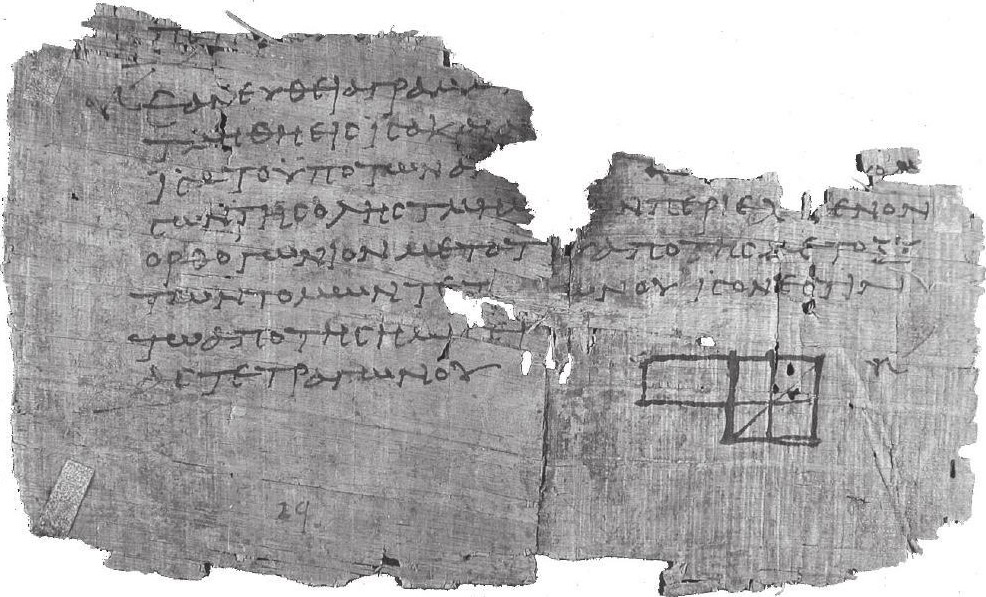 ΕΑΝ ΕΥΘΕΙΑ ΓΡΑΜΜ
ΤΜΗΘΗ ΕΙϹ ΙϹΑ Κ
ΙϹΑ ΤΟ ΥΠΟ ΤΩΝ Α
ϹΩΝ ΤΗϹ ΟΛΗϹ ΤΜΗΜ Ν ΠΕΡΙΕΧ ΜΕΝΟΝ
ΟΡΘΟΓΩΝΙΟΝ ΜΕΤΟ Τ ΑΠΟ ΤΗϹ ΜΕΤΟΞΥ
ΤΩΝ ΤΟΜΩΝ ΤΕΤ ΩΝΟΥ ΙϹΟΝ ΕϹΤΙΝ
ΤΩ ΑΠΟ ΤΗϹ ΗΜΙ ΕΙ
ΑϹ ΤΕΤΡΑΓΩΝΟΥ
29